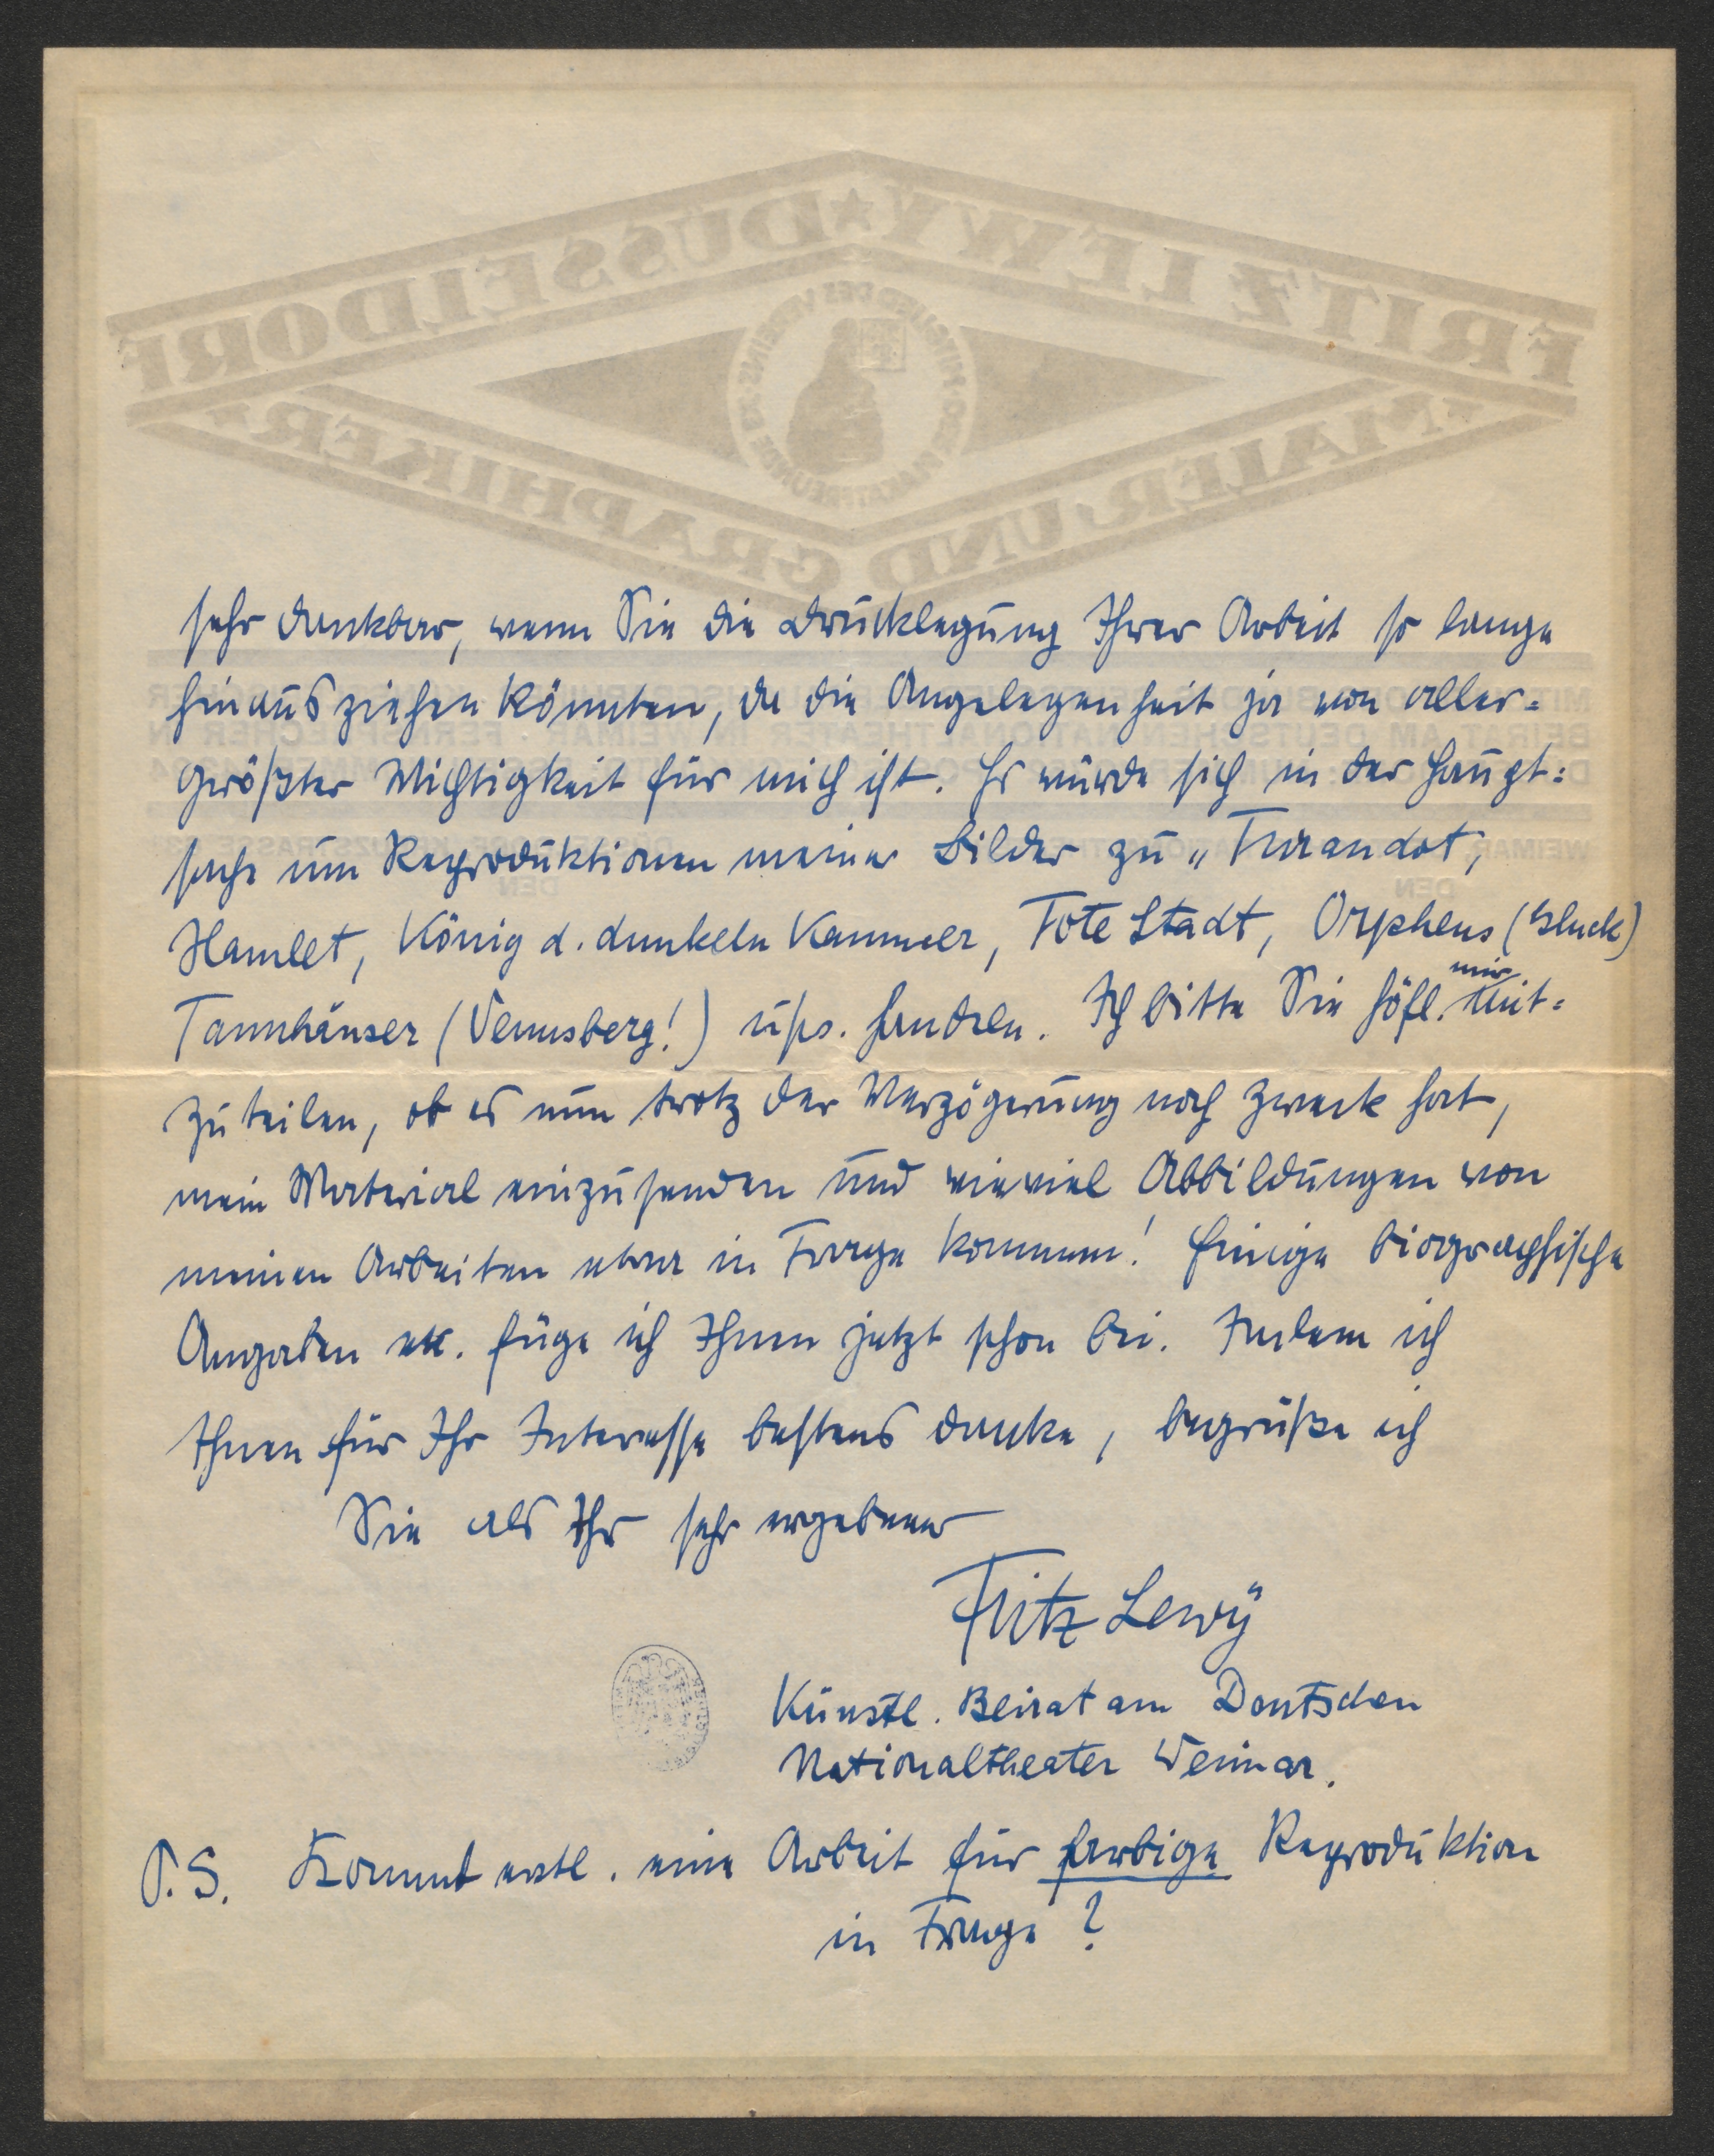 FRITZ LEWY ★ DÜSSELDORF
MALER UND GRAPHIKER
MITGLIED DES VEREINS D. PLAKATFREUNDE
BEIRAT AM DEUTSCHEN NATIONALTHEATER IN WEIMAR · FERNSPRECHER IN
WEIMAR
DEN DEN
sehr dankbar, wenn Sie die Drucklegung Ihrer Arbeit so lange
hinausziehen könnten, da die Angelegenheit ja von aller=
größter Wichtigkeit für mich ist. Es würde sich in der Haupt=
sache um Reproduktionen meiner Bilder zu „Turandot,
Hamlet, König d. dunkeln Kammer, Tote Stadt, Orpheus (Gluck)
Tannhäuser (Venusberg!) usw. handeln. Ich bitte Sie höfl. mir mit=
zuteilen, ob es nun trotz der Verzögerung noch Zweck hat,
mein Material einzusenden und wieviel Abbildungen von
meinen Arbeiten etwa in Frage kommen! Einige biographische
Angaben etc. füge ich Ihnen jetzt schon bei. Indem ich
Ihnen für Ihr Interesse bestens danke, begrüße ich
Sie als Ihr sehr ergebener
Fritz Lewÿ
Künstl. Beirat am Deutschen
Nationaltheater Weimar.
P.S. Kommt evtl. eine Arbeit für farbige Reproduktion
in Frage?